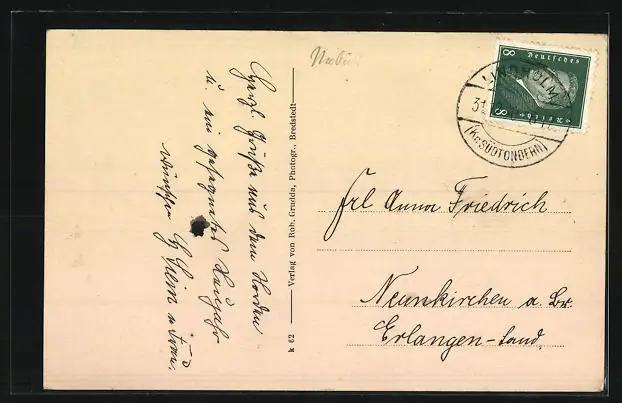 Herzl. Grüße aus dem Norden
u. ein gesegnetes Neujahr
wünschen
u. Frau.
Verlag von Rob. Grudda, Photogr., Bredstedt
k 62
8 Deutsches
8 Reich
LINDHOLM
31
(Kr. SÜDTONDERN)
Frl Anna Friedrich
Neunkirchen a. Br.
Erlangen-Land.